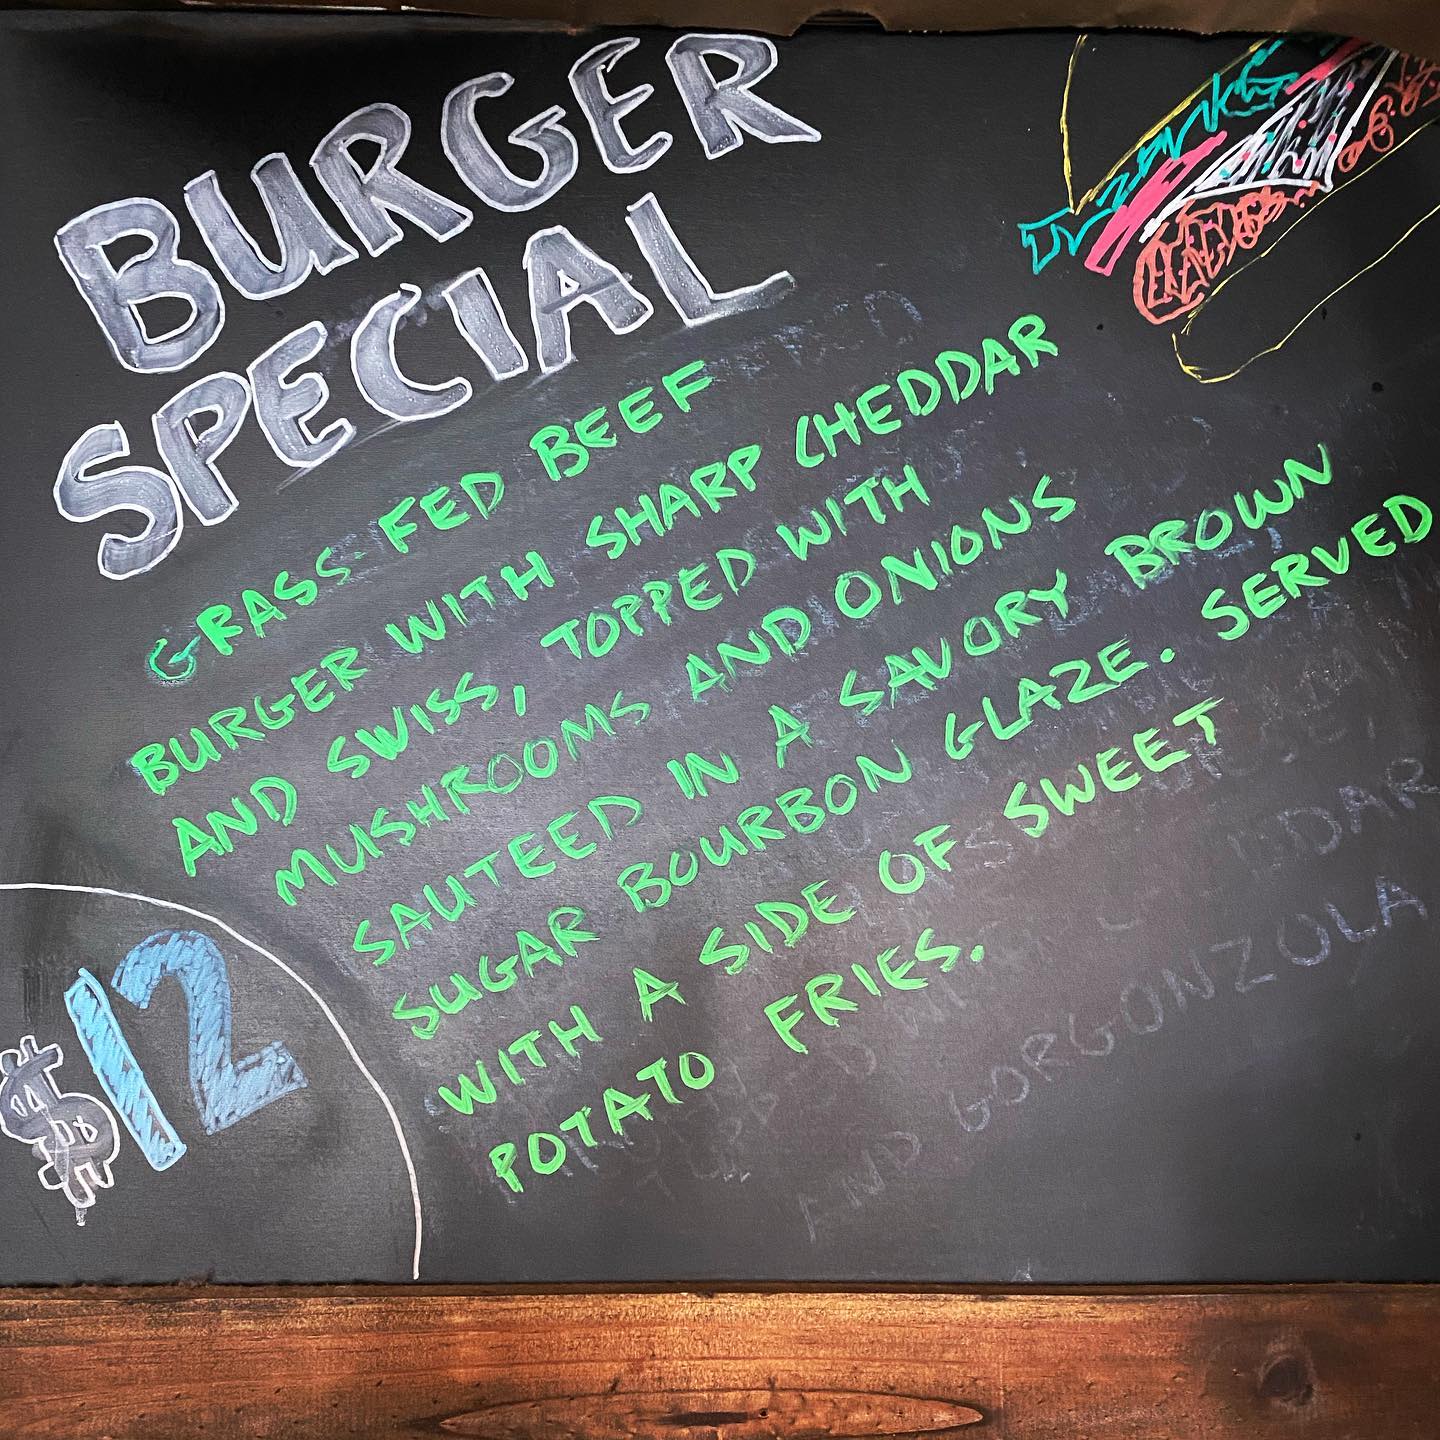 BURGER
SPECIAL
GRASS-FED BEEF
BURGER WITH SHARP CHEDDAR
AND SWISS, TOPPED WITH
MUSHROOMS AND ONIONS
SAUTEED IN A SAVORY BROWN
SUGAR BOURBON GLAZE. SERVED
WITH A SIDE OF SWEET
POTATO FRIES.
AND GORGONZOLA
$12